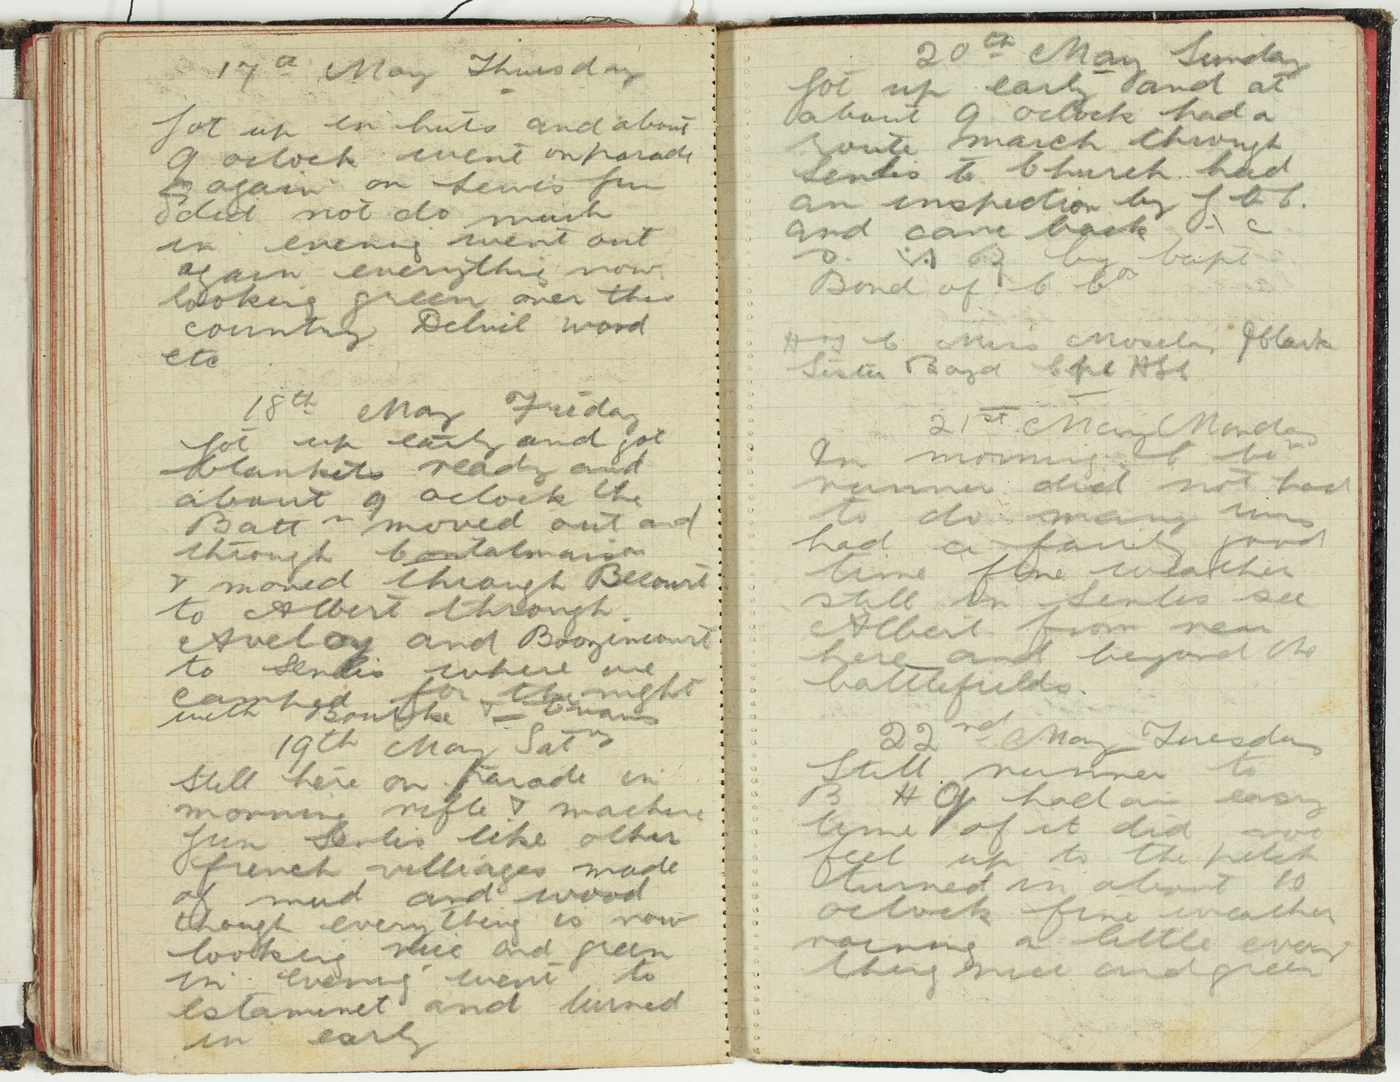 17th May Thursday
Got up in huts and about
9 oclock went on parade
& again on Lewis Gun
did not do much
in evening went out
again everything now
looking green over the
country Delvil wood
etc
18th May Friday
Got up early and got
blankets ready and
about 9 oclock the
Battn moved out and
through Contalmaison
& moved through Becourt
to Albert through
Aveloy and Boozincourt
to Senlis where we
camped for the night
with Bourke & Evans
19th May Saty
Still here on parade in
morning rifle & machine
gun Senlis like other
french villiages made
of mud and wood
though everything is now
looking nice and green
in evening went to
Estaminet and turned
in early
20th May Sunday
Got up early and at
about 9 oclock had a
route march through
Senlis to Church had
an inspection by G.O.C.
and came back
by Capt
Bond of C Co
Miss Moseley J Clark
Sister Boyd
21st May Monday
In morning C Co
runner did not have
to do many runs
had a fairly good
time fine weather
still in Senlis see
Albert from near
here and beyond the
battlefields.
22nd May Tuesday
Still runner to
B HQ had an easy
time of it did not
feel up to the pitch
turned in about 10
oclock fine weather
raining a little every
thing nice and green